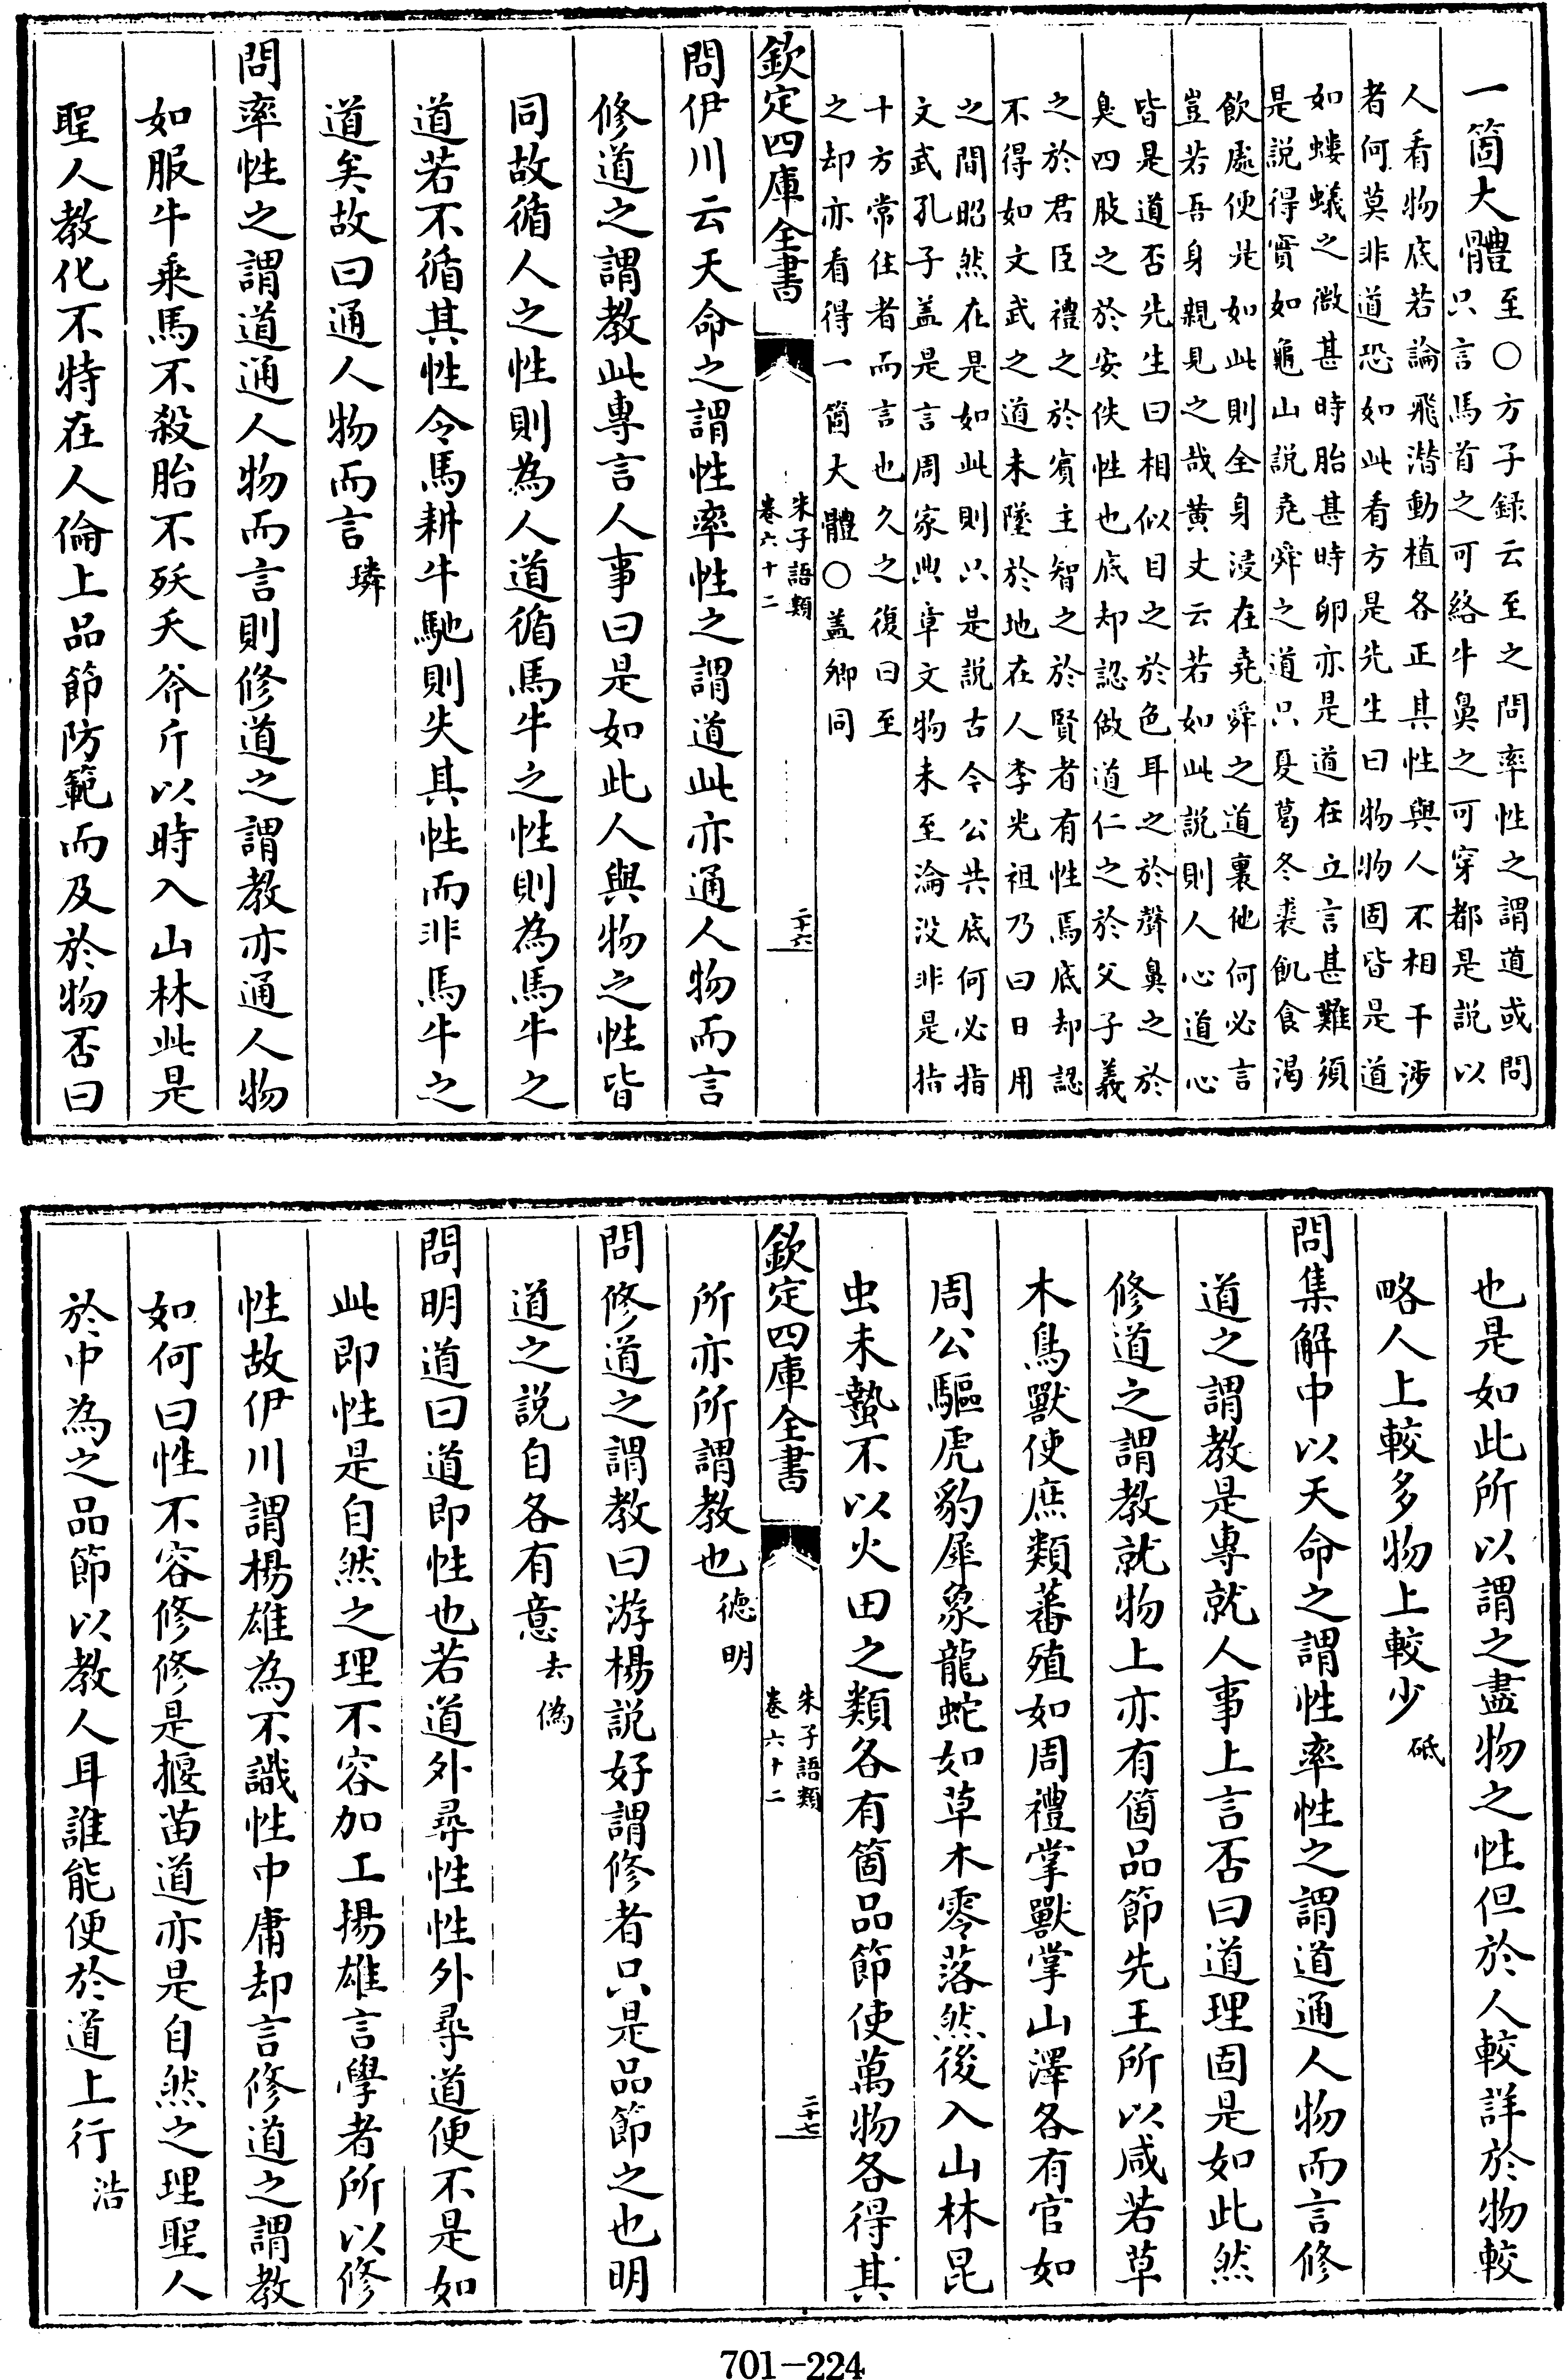 一箇大體至○方子録云至之問率性之謂道或問
只言馬首之可絡牛鼻之可穿都是説以
人看物底若論飛潛動植各正其性與人不相干涉
者何莫非道恐如此看方是先生曰物物固皆是道
如螻蟻之微甚時胎甚時卵亦是道在立言甚難須
是説得實如龜山説堯舜之道只夏葛冬裘飢食渴
飲處便是如此則全身浸在堯舜之道裏他何必言
豈若吾身親見之哉黄丈云若如此説則人心道心
皆是道否先生曰相似目之於色耳之於聲鼻之於
臭四肢之於安佚性也底却認做道仁之於父子義
之於君臣禮之於賓主智之於賢者有性焉底却認
不得如文武之道未墜於地在人李光祖乃曰日用
之間昭然在是如此則只是説古今公共底何必指
文武孔子盖是言周家典章文物未至淪没非是指
十方常住者而言也久之復曰至
之却亦看得一箇大體○盖卿同
欽定四庫全書
朱子語類
卷六十二
二十六
問伊川云天命之謂性率性之謂道此亦通人物而言
修道之謂教此專言人事曰是如此人與物之性皆
同故循人之性則為人道循馬牛之性則為馬牛之
道若不循其性令馬耕牛馳則失其性而非馬牛之
道矣故曰通人物而言璘
問率性之謂道通人物而言則修道之謂教亦通人物
如服牛乘馬不殺胎不殀夭斧斤以時入山林此是
聖人教化不特在人倫上品節防範而及於物否曰
也是如此所以謂之盡物之性但於人較詳於物較
略人上較多物上較少砥
問集解中以天命之謂性率性之謂道通人物而言修
道之謂教是專就人事上言否曰道理固是如此然
修道之謂教就物上亦有箇品節先王所以咸若草
木鳥獸使庶類蕃殖如周禮掌獸掌山澤各有官如
周公驅虎豹犀象龍蛇如草木零落然後入山林昆
虫未蟄不以火田之類各有箇品節使萬物各得其
欽定四庫全書
朱子語類
卷六十二
二十七
所亦所謂教也德明
問修道之謂教曰游楊説好謂修者只是品節之也明
道之説自各有意去偽
問明道曰道即性也若道外尋性性外尋道便不是如
此即性是自然之理不容加工揚雄言學者所以修
性故伊川謂楊雄為不識性中庸却言修道之謂教
如何曰性不容修修是揠苗道亦是自然之理聖人
於中為之品節以教人耳誰能便於道上行浩
701-224